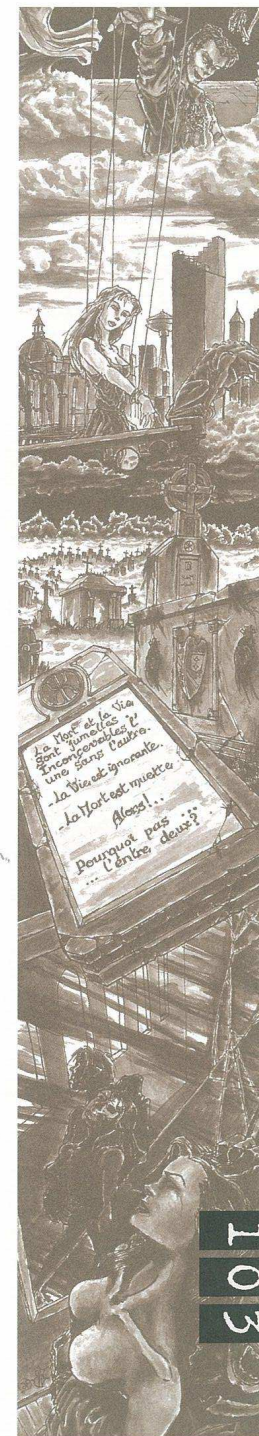 La Mort et la Vie
sont jumelles
Inconcevables l'
une sans l'autre.
- La Vie est ignorante.
- La Mort est muette
Alors!..
Pourquoi pas ...
... l'entre deux?
103